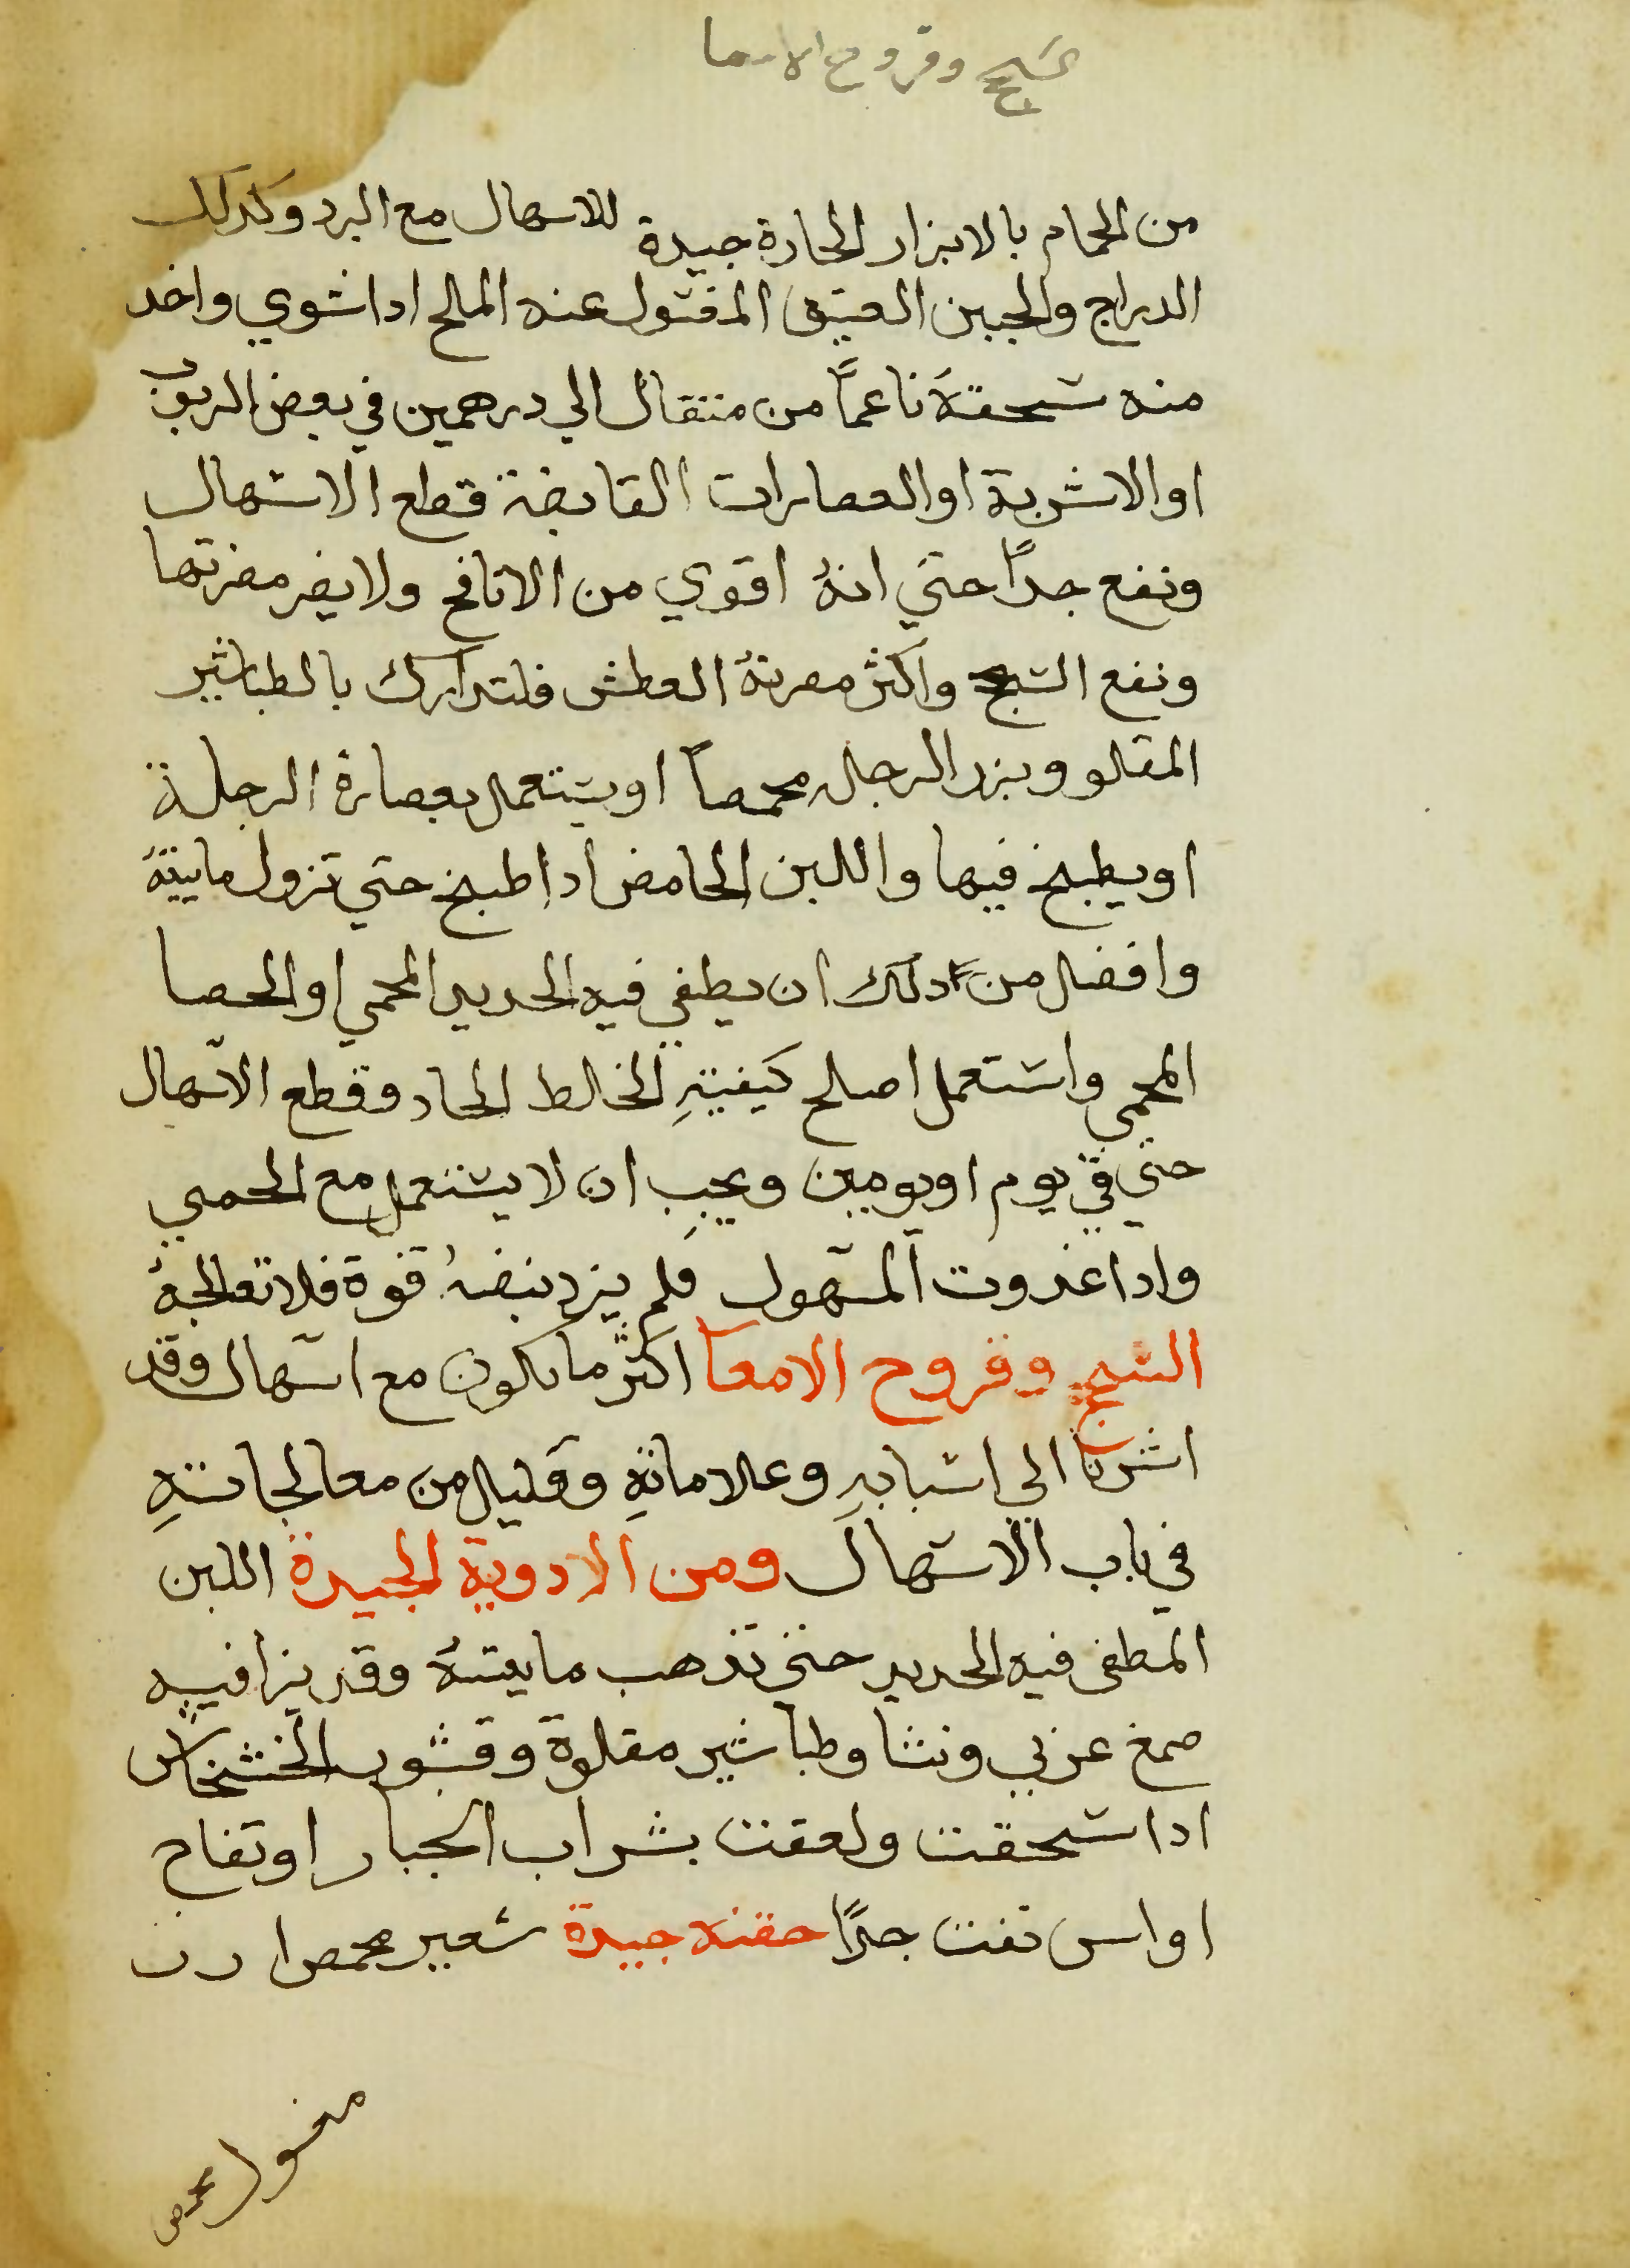 سحج وقروح الامعا
من الحمام بالابزار الحارة جيدة للاسهال مع البرد وكدلك
الدراج والجبن العتيق المغسول عنه المالح ادا شوي واخد
منه سحقهَ ناعماً من متقال الي درهمين في بعض الربوب
او الاشربة او العصارات القابضة قطع الاسهال
ونفع جداً حتي انهُ اقوي من الانافح ولا يضر مضرتها
ونفع السحج واكثر مضرتهُ العطش فلتدارك بالطباشير
المقلو وبزر الرجله محمصاً او يستعمل بعصارة الرجلة
او يطبخ فيها واللبن الحامض ادا طبخ حتي تزول ماييتهُ
وافضل من دلك ان يطفي فيه الحديد المحمي او الحصا
المحمي واستعمل اصلح كيفيتهِ الخالط الحاد وقطع الاسهال
حتي في يوم او يومين ويجب ان لا يستعمل مع الحمي
وادا غدوت المسهول فلم يزد نبضهُ قوة فلا تعالجهُ
السحج وقروح الامعا اكثر ما يكون مع اسهال وقد
اشرنا الي اسبابهِ وعلاماتهِ وقليل من معالجاتهِ
في باب الاسهال ومن الادوية الجيدة اللبن
المطفى فيه الحديد حتي تذهب مايتهُ وقد يزا فيه
صمغ عربي ونشا وطباشير مقلوة وقشور الخشخاش
ادا سحقت ولعقت بشراب الجبار او تفاح
او اس نفعت جداً حقنه جيدة شعير محمص ارز
مغسول محمص